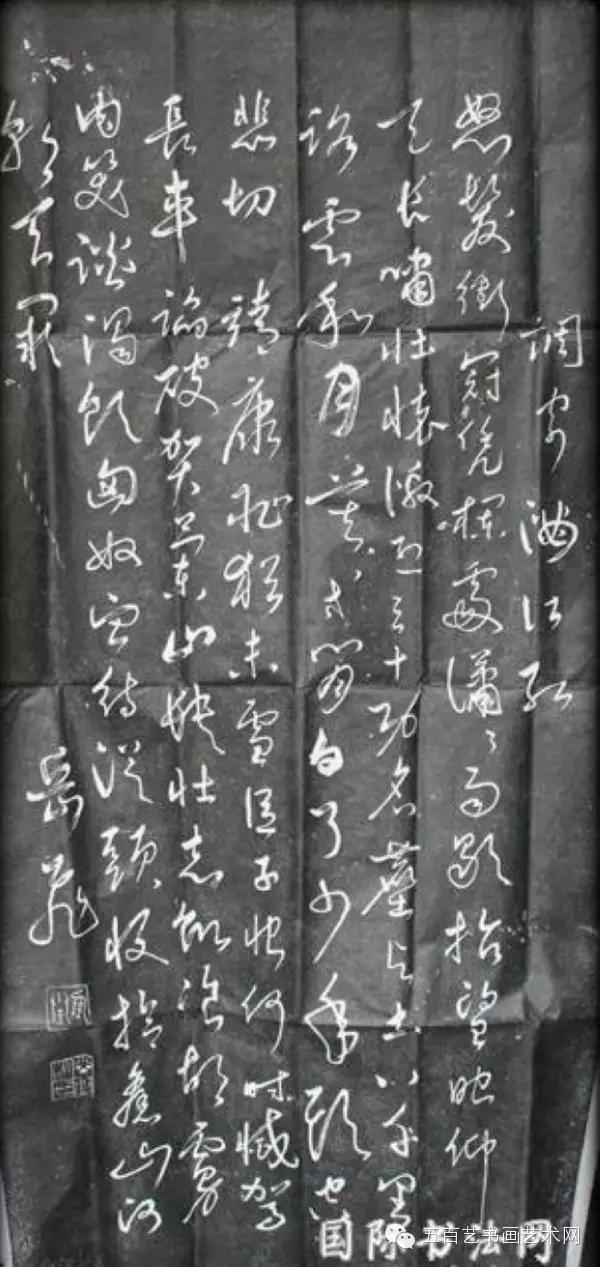 調寄滿江紅
怒髮衝冠凭欄處瀟〻雨歇抬望眼仰
天長嘯壯懷激烈三十功名塵與土八千里
路雲和月莫等閒白了少年頭空
悲切 靖康恥猶未雪臣子恨何時滅駕
長車 踏破賀蘭山缺壯志飢飡胡虜
肉笑談渴飲匈奴血待從頭收拾舊山河
朝天闕
岳飛
国际书法网
五百艺书画艺术网